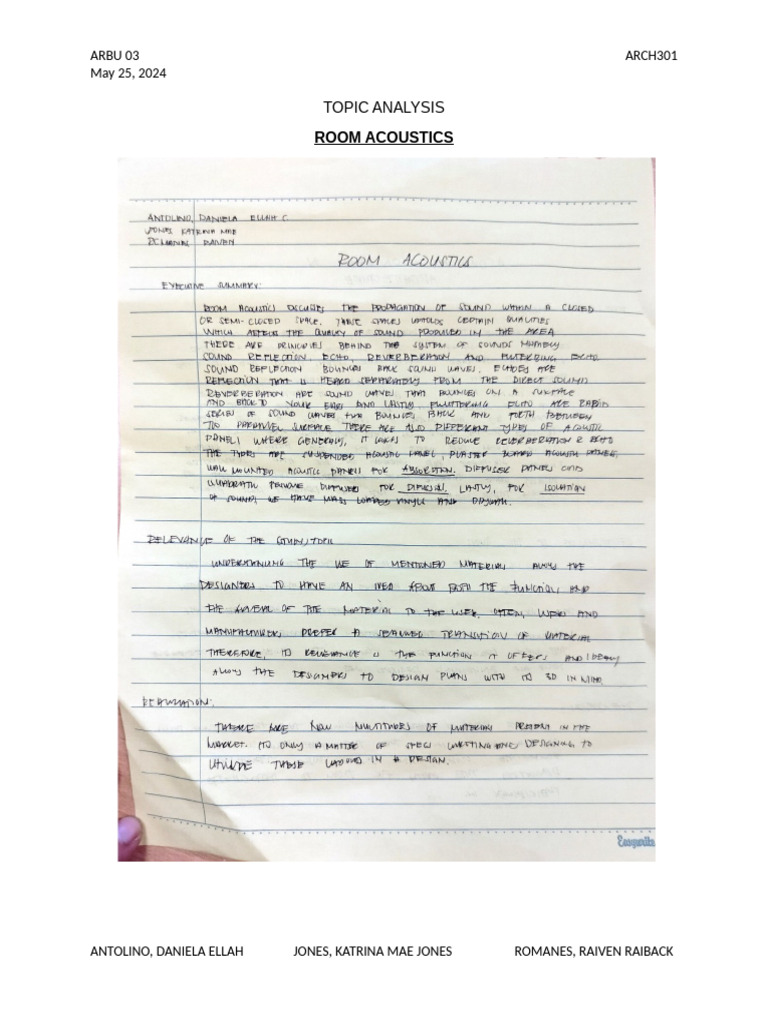 ARBU 03 ARCH301
May 25, 2024
TOPIC ANALYSIS
ROOM ACOUSTICS
ANTOLINO, DANIELA ELLAH C.
JONES KATRINA MAE
ROOM ACOUSTICS
EXECUTIVE SUMMARY:
ROOM ACOUSTICS DISCUSSES THE PROPAGATION OF SOUND WITHIN A CLOSED
OR SEMI-CLOSED SPACE. THESE SPACES CERTAIN QUALITIES
WHICH AFFECTS THE QUALITY OF SOUND PRODUCED IN THE AREA
THERE ARE PRINCIPLES BEHIND THE SYSTEM OF SOUNDS NAMELY:
SOUND REFLECTION, ECHO, REVERBERATION AND FLUTTERING ECHO.
SOUND REFLECTION BOUNCES BACK SOUND WAVES. ECHOES ARE
REFLECTION THAT IS HEARD SEPARATELY FROM THE DIRECT SOUND
REVERBERATION ARE SOUND WAVES THAT BOUNCES ON A SURFACE
AND BACK TO YOUR EARS AND LASTLY, FLUTTERING ECHO ARE RAPID
SERIES OF SOUND WAVES THAT BOUNCES BACK AND FORTH BETWEEN
TWO PARALLEL SURFACE THERE ARE ALSO DIFFERENT TYPES OF ACOUSTIC
PANELS WHERE GENERALLY, IT TO REDUCE REVERBERATION & ECHO
THE TYPES ARE SUSPENDED ACOUSTIC PANEL, PLASTER BOARD ACOUSTIC PANEL,
WALL MOUNTED ACOUSTIC PANELS FOR ABSORPTION. DIFFUSER PANELS AND
QUADRATIC DIFFUSERS FOR DIFFUSION. LASTLY, FOR ISOLATION
OF SOUND, WE HAVE MASS LOADED VINYLS AND DRYWALL.
RELEVANCE OF THE TOPIC
UNDERSTANDING THE USE OF MENTIONED MATERIALS ALLOWS THE
DESIGNERS TO HAVE AN IDEA ABOUT BOTH THE FUNCTION AND
THE OF THE MATERIAL TO THE USER. OFTEN, USERS AND
MANUFACTURERS PREFER A SEAMLESS TRANSITION OF MATERIAL
THEREFORE, ITS RELEVANCE IS THE FUNCTION IT OFFERS AND IDEALLY
ALLOWS THE DESIGNERS TO DESIGN PLANS WITH ITS 3D IN MIND.
REALIZATION:
THERE ARE NOW MULTITUDES OF MATERIALS PRESENT IN THE
MARKET. ITS ONLY A MATTER OF SPECS WRITING AND DESIGNING TO
UTILIZE THESE IN A DESIGN.
Easywrite
ANTOLINO, DANIELA ELLAH JONES, KATRINA MAE JONES ROMANES, RAIVEN RAIBACK